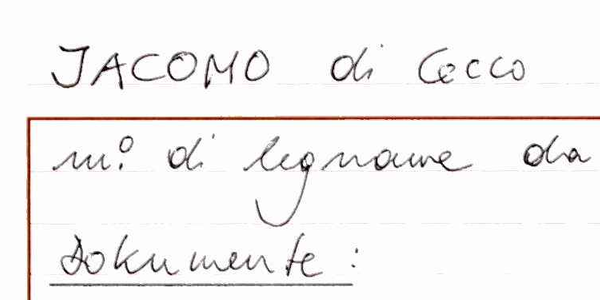 JACOMO di Cecco
m.º di legname da
Dokumente: